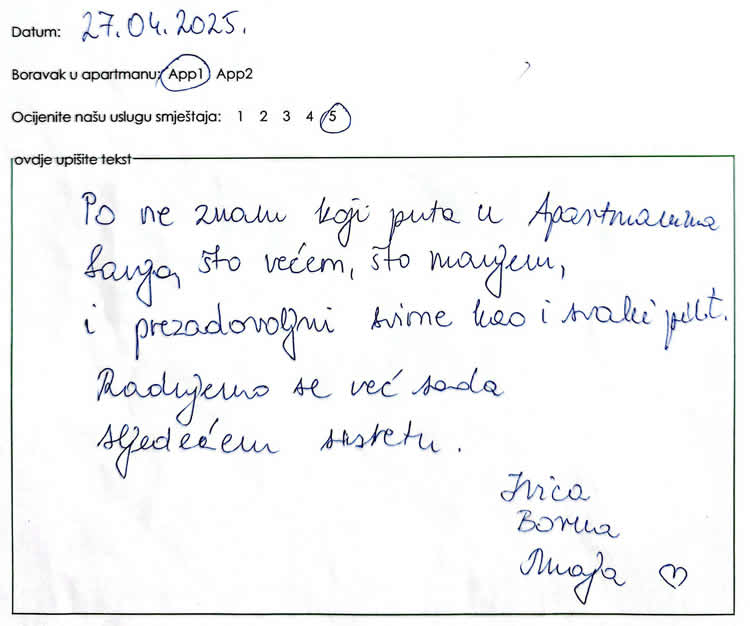 Datum: 27.04.2025.
Boravak u apartmanu: App1 App2
Ocijenite našu uslugu smještaja: 1 2 3 4 5
ovdje upišite tekst
Po ne znam koji puta u Apartmanima
Sanja, što većem, što manjem,
i prezadovoljni svime kao i svaki put.
Radujemo se već sada
sljedećem susretu.
Ivica
Borna
Maja ♡